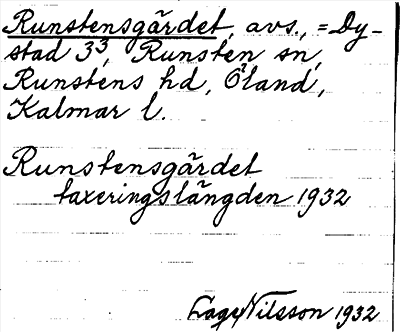 Runstensgärdet, avs., = Dy-
stad 3³, Runsten sn,
Runstens hd, Öland,
Kalmar l.
Runstensgärdet
taxeringslängden 1932
Lage Nilsson 1932